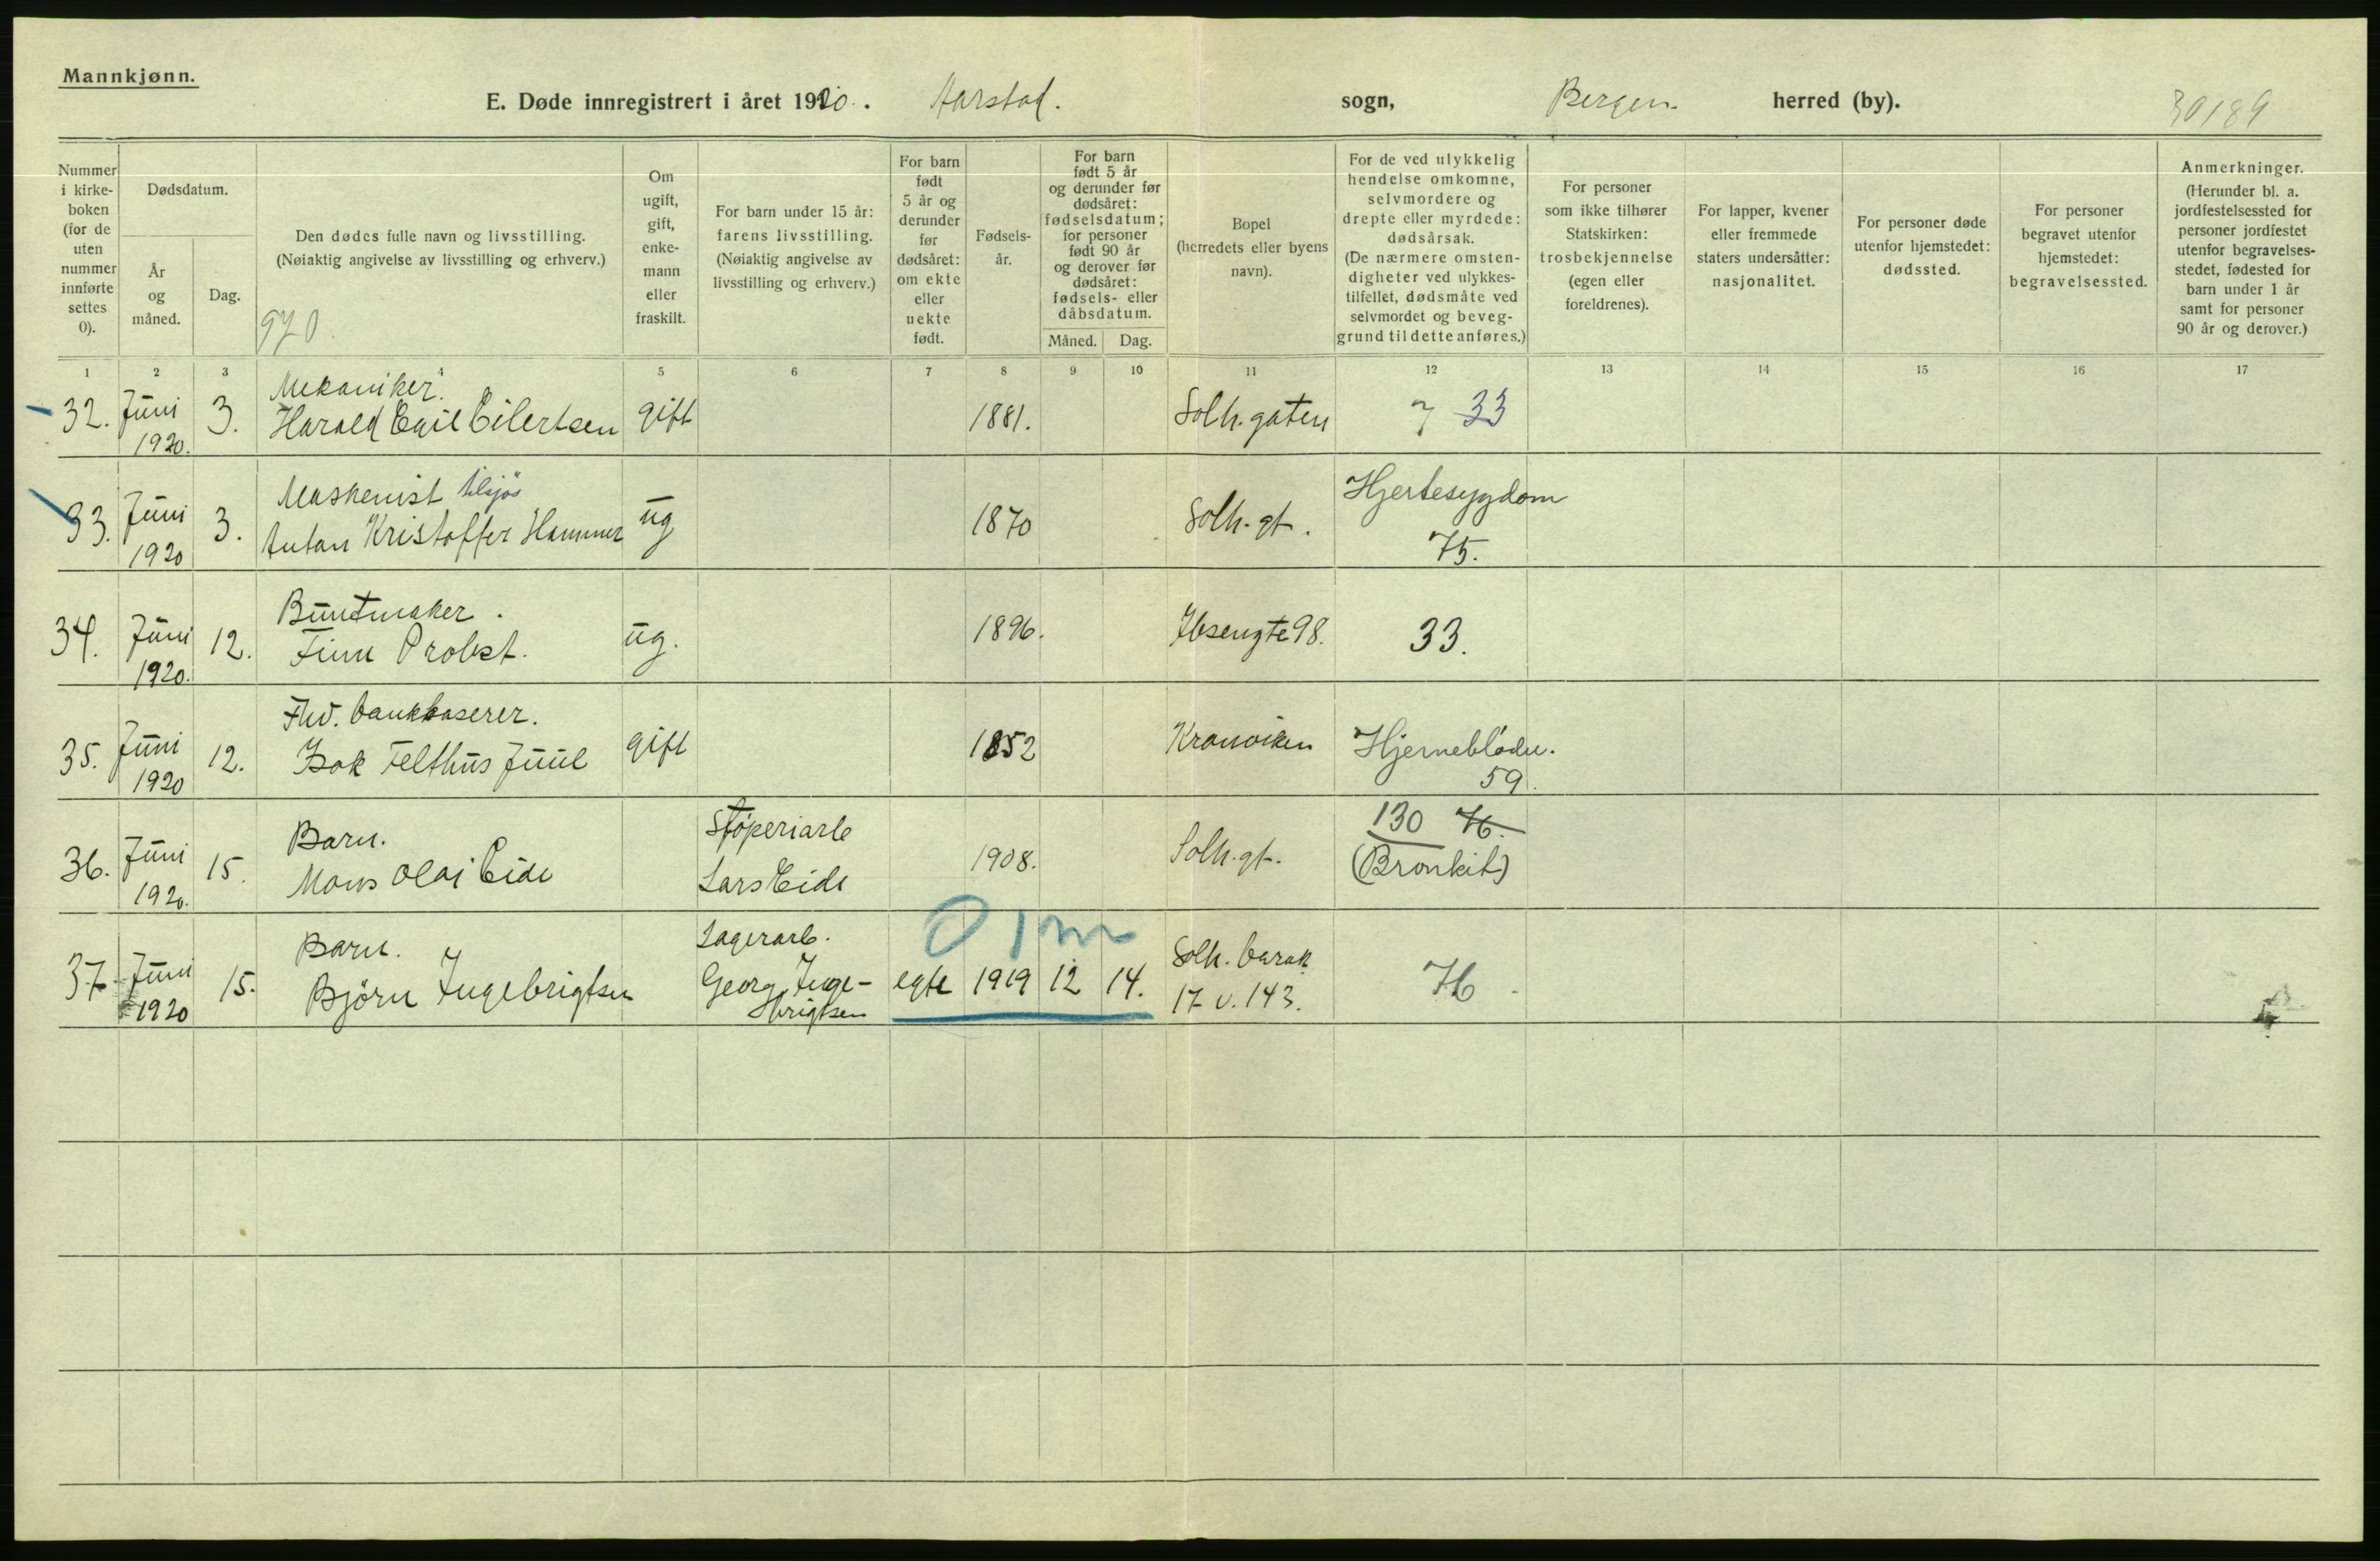 Mannkjønn.
E. Døde innregistrert i året 1920. Aarstad. sogn, Bergen. herred (by). 30189
Nummer i kirkeboken (for de uten nummer innførte settes 0).
Dødsdatum.
År og måned.
Dag.
Den dødes fulle navn og livsstilling.
(Nøiaktig angivelse av livsstilling og erhverv.)
970
Om ugift, gift, enkemann eller fraskilt.
For barn under 15 år: farens livsstilling. (Nøiaktig angivelse av livsstilling og erhverv.)
For barn født 5 år og derunder før dødsåret: om ekte eller uekte født.
Fødselsår.
For barn født 5 år og derunder før dødsåret: fødselsdatum; for personer født 90 år og derover før dødsåret: fødsels- eller dåbsdatum.
Måned. Dag.
Bopel (herredets eller byens navn).
For de ved ulykkelig hendelse omkomne, selvmordere og drepte eller myrdede: dødsårsak. (De nærmere omstendigheter ved ulykkestilfellet, dødsmåte ved selvmordet og beveggrund til dette anføres.)
For personer som ikke tilhører Statskirken: trosbekjennelse (egen eller foreldrenes).
For lapper, kvener eller fremmede staters undersåtter: nasjonalitet.
For personer døde utenfor hjemstedet: dødssted.
For personer begravet utenfor hjemstedet: begravelsessted.
Anmerkninger. (Herunder bl. a. jordfestelsessted for personer jordfestet utenfor begravelsesstedet, fødested for barn under 1 år samt for personer 90 år og derover.)
1 2 3 4 5 6 7 8 9 10 11 12 13 14 15 16 17
Mekaniker.
32. Juni 1920. 3. Harald Emil Eilertsen gift 1881. Solh. gaten 33
Maskenist tilsjøs
33. Juni 1920 3. Anton Kristoffer Hammer ug 1870 Solh. gt. Hjertesygdom 75.
Buntmaker.
34. Juni 1920. 12. Finn Probst. ug. 1896. Ibsengte 98. 33.
Fhv. bankkaserer.
35. Juni 1920 12. Isak Felthus Juul gift 1852 Kronviken Hjerneblødn. 59.
Barn. Støperiarb 130 76.
36. Juni 1920. 15. Mons Olai Eide Lars Eide 1908. Solh. gt. (Bronkit)
Barn. Lagerarb. 0 1 m Solh. barak
37. Juni 1920 15. Björn Ingebrigtsen Georg Ingebrigtsen egte 1919 12 14. 17 v. 143. 76